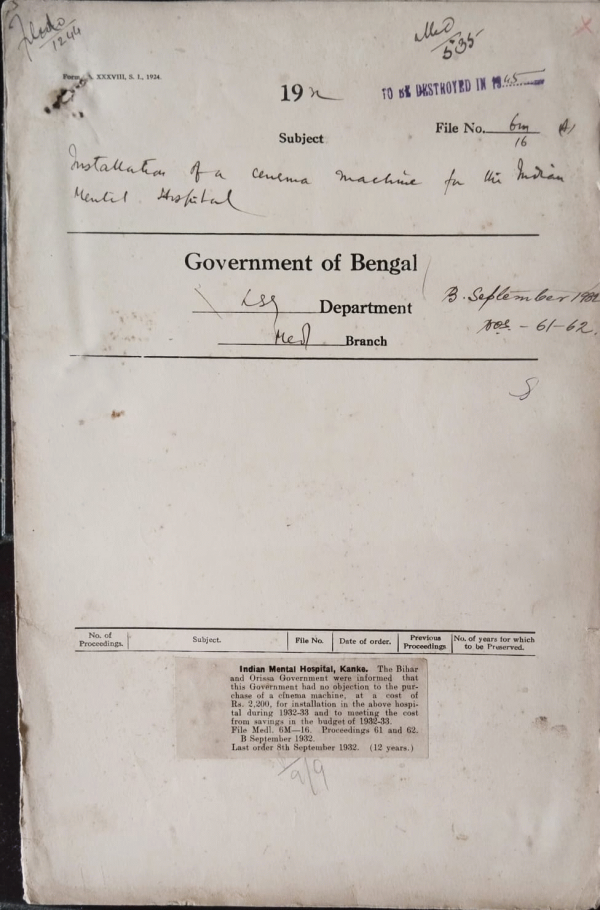 1244
Med
535
Form No. XXXVIII, S. I., 1924.
1932
TO BE DESTROYED IN 1945
File No. 6m/16
Subject
Installation of a cenema machine for the Indian
Mental Hospital
Government of Bengal
LSG Department
B. September 1932
Nos - 61-62.
Med Branch
No. of Proceedings.
Subject.
File No.
Date of order.
Previous Proceedings
No. of years for which to be Preserved.
Indian Mental Hospital, Kanke. The Bihar
and Orissa Government were informed that
this Government had no objection to the pur-
chase of a cinema machine, at a cost of
Rs. 2,200, for installation in the above hospi-
tal during 1932-33 and to meeting the cost
from savings in the budget of 1932-33.
File Medl. 6M—16. Proceedings 61 and 62.
B September 1932.
Last order 8th September 1932. (12 years.)